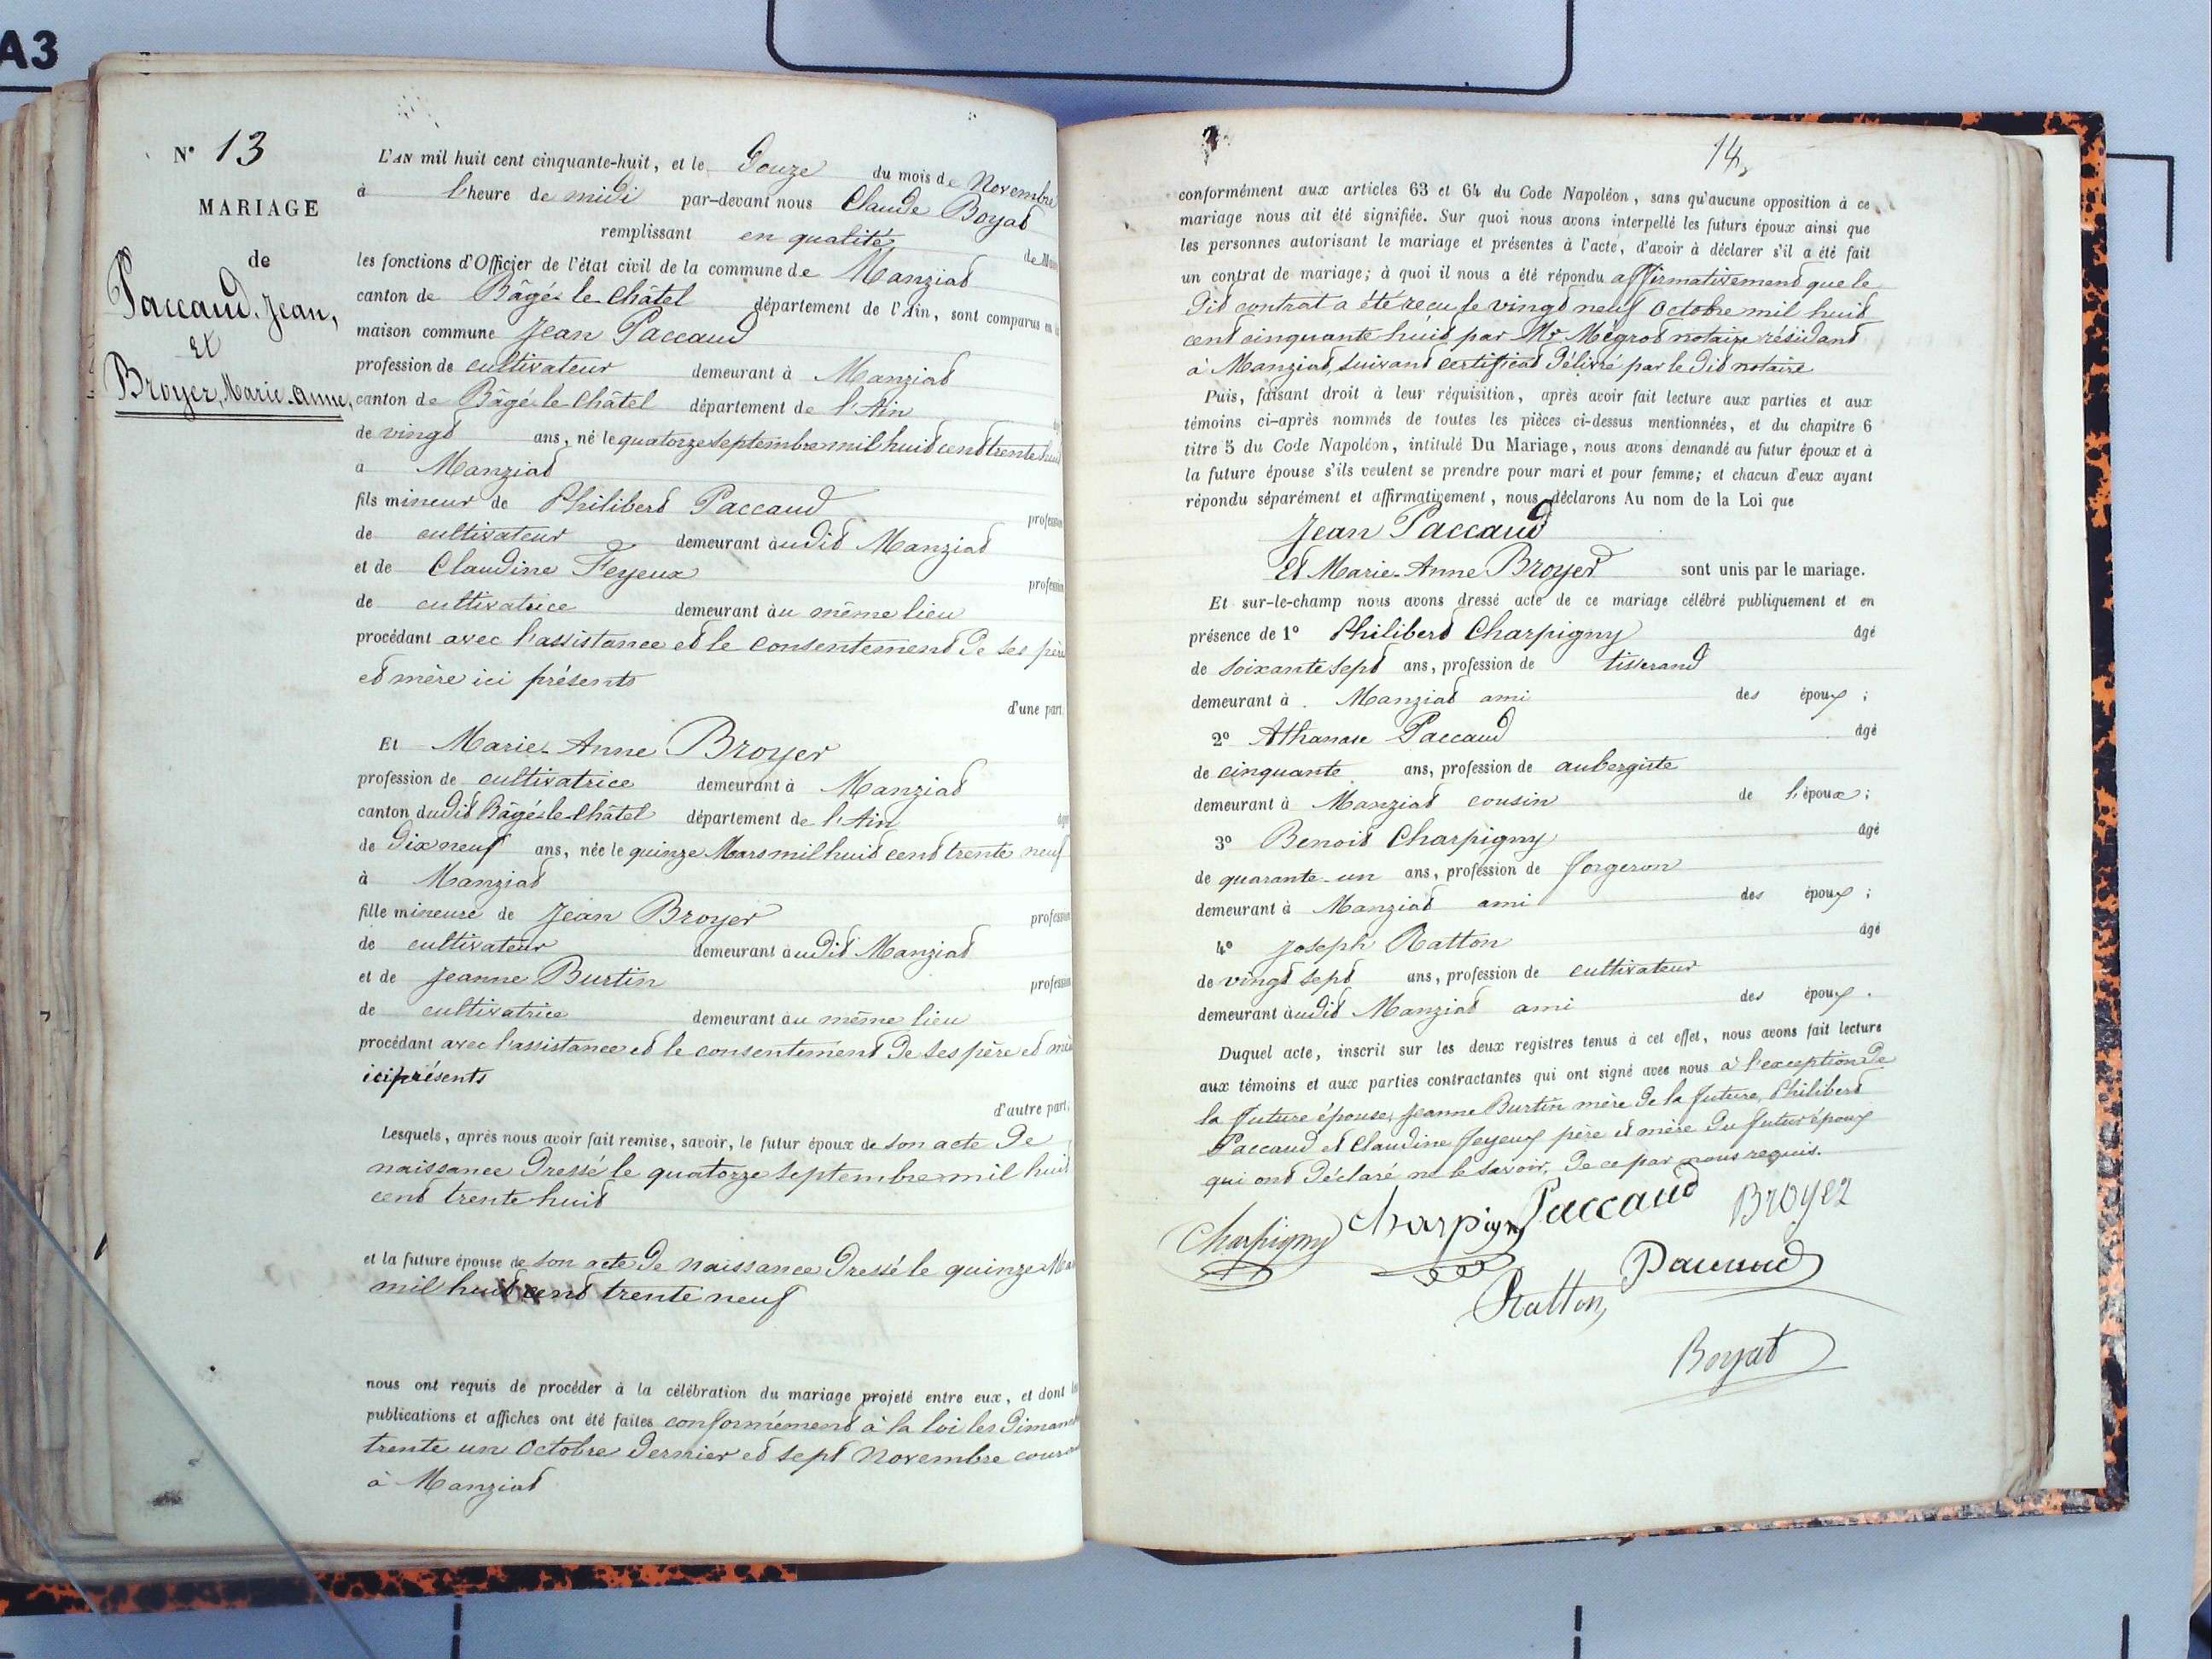 A3
N° 13
MARIAGE
de
Paccaud, Jean,
Et
Broyer, Marie-Anne,
L'AN mil huit cent cinquante-huit, et le Douze du mois de Novembre
à l'heure de midi par-devant nous Claude Boyat
remplissant en qualité de
les fonctions d'Officier de l'état civil de la commune de Manziat
canton de Bâgé-le-Châtel département de l'Ain, sont comparus en la
maison commune Jean Paccaud
profession de cultivateur demeurant à Manziat
canton de Bâgé-le-Châtel département de l'Ain
de vingt ans, né le quatorze Septembre mil huit cent trente huit
à Manziat
fils mineur de Philibert Paccaud profession
de cultivateur demeurant audit Manziat
et de Claudine Feyeux profession
de cultivatrice demeurant au même lieu
procédant avec l'assistance et le consentement de ses père
et mère ici présents
d'une part,
Et Marie-Anne Broyer
profession de cultivatrice demeurant à Manziat
canton dudit Bâgé-le-Châtel département de l'Ain âgée
de Dix neuf ans, née le quinze Mars mil huit cent trente neuf
à Manziat
fille mineure de Jean Broyer profession
de cultivateur demeurant audit Manziat
et de Jeanne Burtin profession
de cultivatrice demeurant au même lieu
procédant avec l'assistance et le consentement de ses père et mère
ici présents
d'autre part,
Lesquels, après nous avoir fait remise, savoir, le futur époux de son acte de
naissance dressé le quatorze septembre mil huit
cent trente huit
et la future épouse de son acte de naissance dressé le quinze Mars
mil huit cent trente neuf
nous ont requis de procéder à la célébration du mariage projeté entre eux, et dont les
publications et affiches ont été faites conformément à la loi les dimanches
trente un Octobre dernier et sept Novembre courant
à Manziat
14,
conformément aux articles 63 et 64 du Code Napoléon, sans qu'aucune opposition à ce
mariage nous ait été signifiée. Sur quoi nous avons interpellé les futurs époux ainsi que
les personnes autorisant le mariage et présentes à l'acte, d'avoir à déclarer s'il a été fait
un contrat de mariage; à quoi il nous a été répondu affirmativement que le
dit contrat a été reçu le vingt neuf Octobre mil huit
cent cinquante huit par Mr Mégrot notaire résidant
à Manziat, suivant certificat délivré par le dit notaire
Puis, faisant droit à leur réquisition, après avoir fait lecture aux parties et aux
témoins ci-après nommés de toutes les pièces ci-dessus mentionnées, et du chapitre 6
titre 5 du Code Napoléon, intitulé Du Mariage, nous avons demandé au futur époux et à
la future épouse s'ils veulent se prendre pour mari et pour femme; et chacun d'eux ayant
répondu séparément et affirmativement, nous déclarons Au nom de la Loi que
Jean Paccaud
Et Marie-Anne Broyer sont unis par le mariage.
Et sur-le-champ nous avons dressé acte de ce mariage célébré publiquement et en
présence de 1° Philibert Charpigny âgé
de soixante sept ans, profession de tisserand
demeurant à Manziat ami des époux ;
2° Athanase Paccaud âgé
de cinquante ans, profession de aubergiste
demeurant à Manziat cousin de l'époux ;
3° Benoit Charpigny âgé
de quarante-un ans, profession de forgeron
demeurant à Manziat ami des époux ;
4° Joseph Ratton âgé
de vingt sept ans, profession de cultivateur
demeurant audit Manziat ami des époux.
Duquel acte, inscrit sur les deux registres tenus à cet effet, nous avons fait lecture
aux témoins et aux parties contractantes qui ont signé avec nous à l'exception de
la future épouse, Jeanne Burtin mère de la future, Philibert
Paccaud et Claudine Feyeux père et mère du futur époux
qui ont déclaré ne le savoir, de ce par nous requis.
Charpigny Charpigny Paccaud Broyer
Paccaud
Ratton,
Boyat